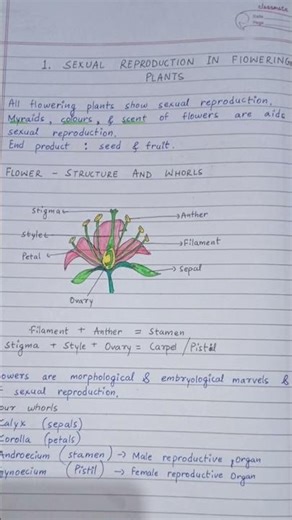 classmate
Date
Page
1. SEXUAL REPRODUCTION IN FlOWERING
PLANTS
All flowering plants show sexual reproduction.
Myraids, colours, & scent of flowers are aids
sexual reproduction.
End product : seed & fruit.
FLOWER - STRUCTURE AND WHORLS
Stigma
Anther
Style
Filament
Petal
Sepal
Ovary
Filament + Anther = Stamen
Stigma + Style + Ovary = Carpel / Pistil
lowers are morphological & embryological marvels &
sexual reproduction.
our whorls
Calyx (sepals)
Corolla (petals)
Androecium (stamen) → Male reproductive organ
ynoecium (Pistil) → Female reproductive Organ